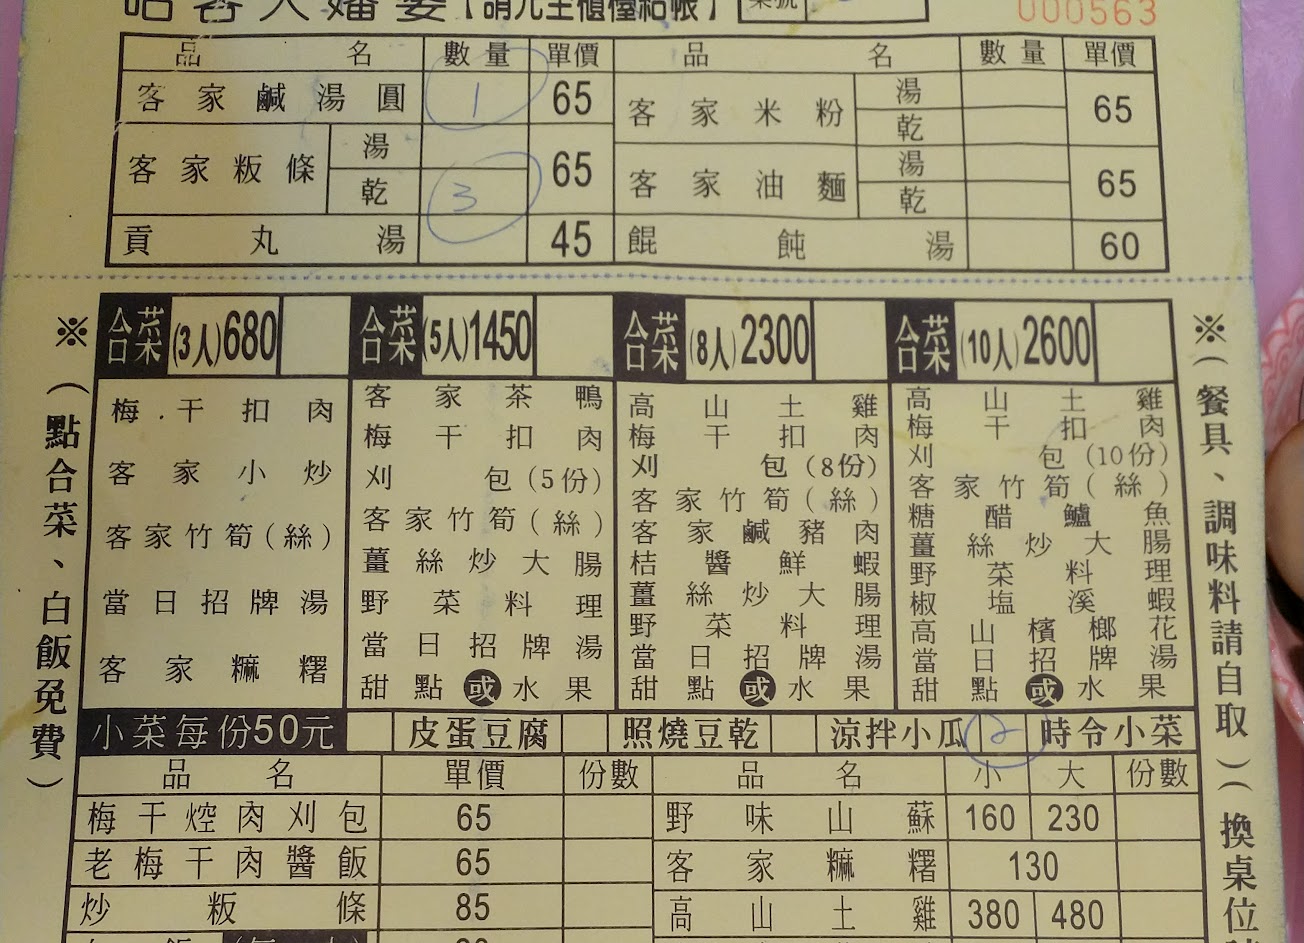 哈客人嬸婆【請先至櫃檯結帳】 桌號
000563
品名 數量 單價 品名 數量 單價
客家鹹湯圓 1 65 客家米粉 湯 乾 65
客家粄條 湯 乾 3 65 客家油麵 湯 乾 65
貢丸湯 45 餛飩湯 60
※(點合菜、白飯免費)
合菜(3人)680
梅干扣肉
客家小炒
客家竹筍(絲)
當日招牌湯
客家麻糬
合菜(5人)1450
客家茶鴨
梅干扣肉
刈包(5份)
客家竹筍(絲)
薑絲炒大腸
野菜料理
當日招牌湯
甜點或水果
合菜(8人)2300
高山土雞
梅干扣肉
刈包(8份)
客家竹筍(絲)
客家鹹豬肉
桔醬鮮蝦
薑絲炒大腸
野菜料理
當日招牌湯
甜點或水果
合菜(10人)2600
高山土雞
梅干扣肉
刈包(10份)
客家竹筍(絲)
糖醋鱸魚
薑絲炒大腸
野菜料理
椒塩溪蝦
高山檳榔花
當日招牌湯
甜點或水果
※(餐具、調味料請自取)(換桌位
小菜每份50元 皮蛋豆腐 照燒豆乾 涼拌小瓜 2 時令小菜
品名 單價 份數 品名 小 大 份數
梅干焢肉刈包 65 野味山蘇 160 230
老梅干肉醬飯 65 客家麻糬 130
炒粄條 85 高山土雞 380 480